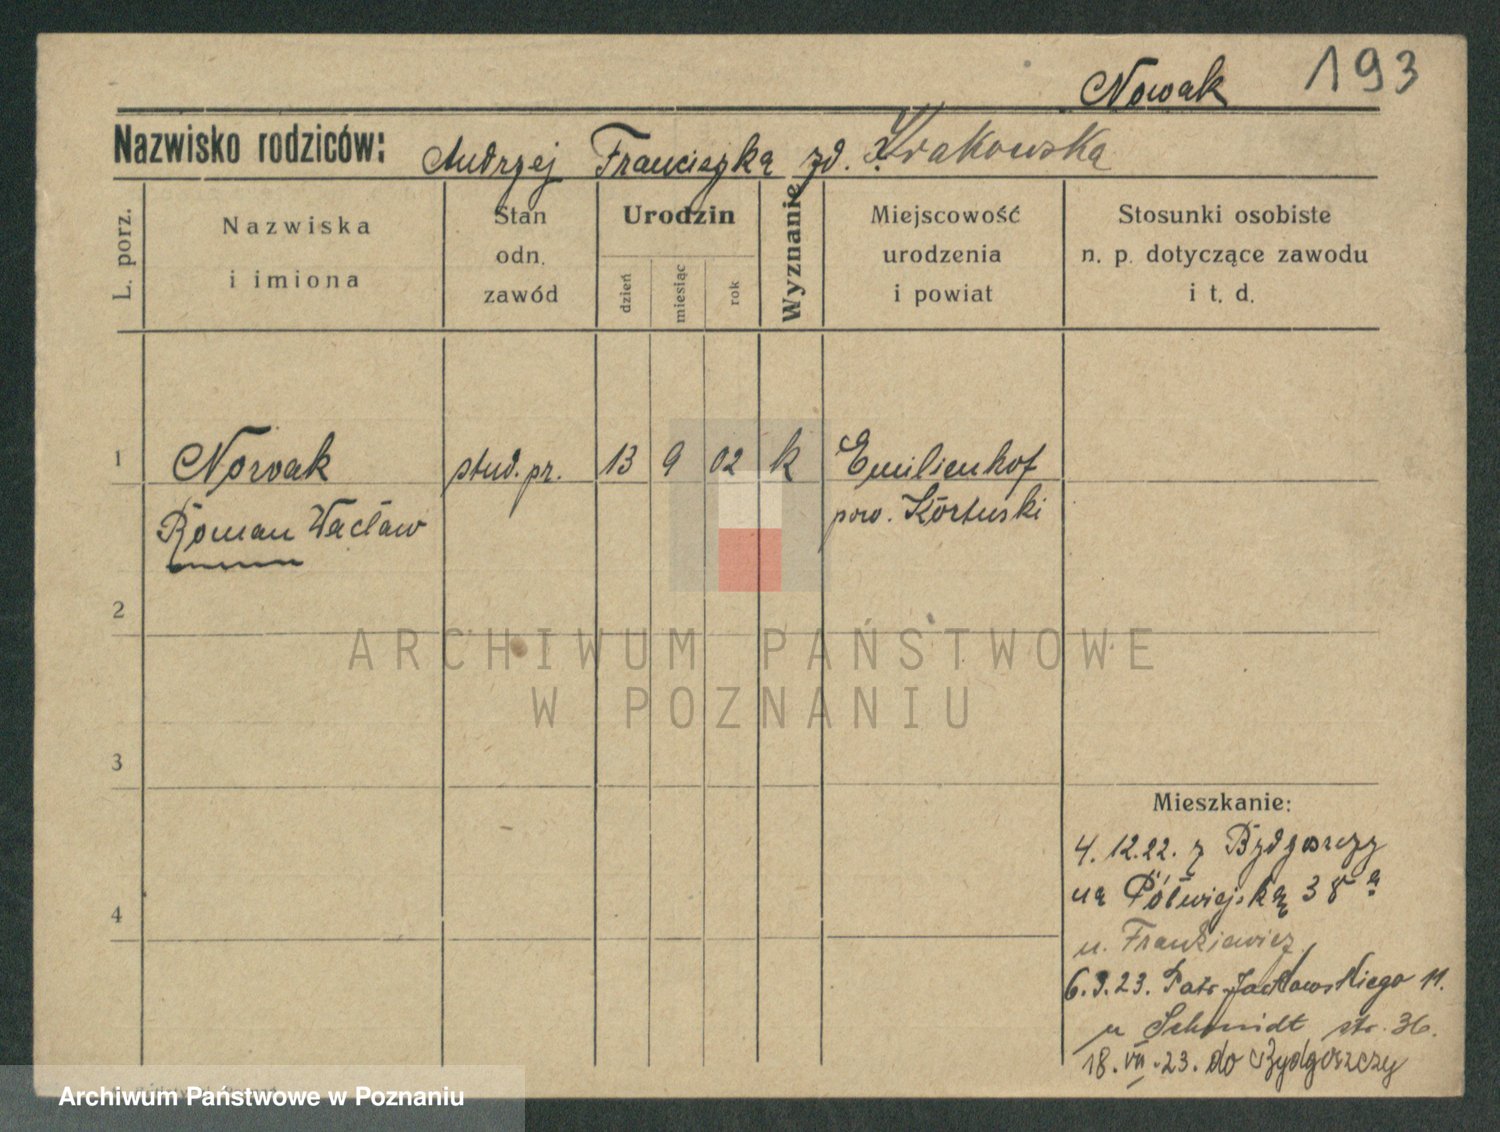 Nowak 193
Nazwisko rodziców: Andrzej Franciszka zd. Krakowska
L. porz.
Nazwiska
i imiona
Stan
odn.
zawód
Urodzin
dzień
miesiąc
rok
Wyznanie
Miejscowość
urodzenia
i powiat
Stosunki osobiste
n. p. dotyczące zawodu
i t. d.
1 Nowak stud. pr. 13 9 02 k Emilienhof
Roman Wacław pow. Kórtuski
2
3
4
Mieszkanie:
4. 12.22. z Bydgoszczy
na Półwiejską 38 a
u. Frankiewicz
6.3.23. Patr. Jackowskiego 11.
u Schmidt str. 36.
18. VII. 23. do Bydgoszczy
ARCHIWUM PAŃSTWOWE
W POZNANIU
Archiwum Państwowe w Poznaniu